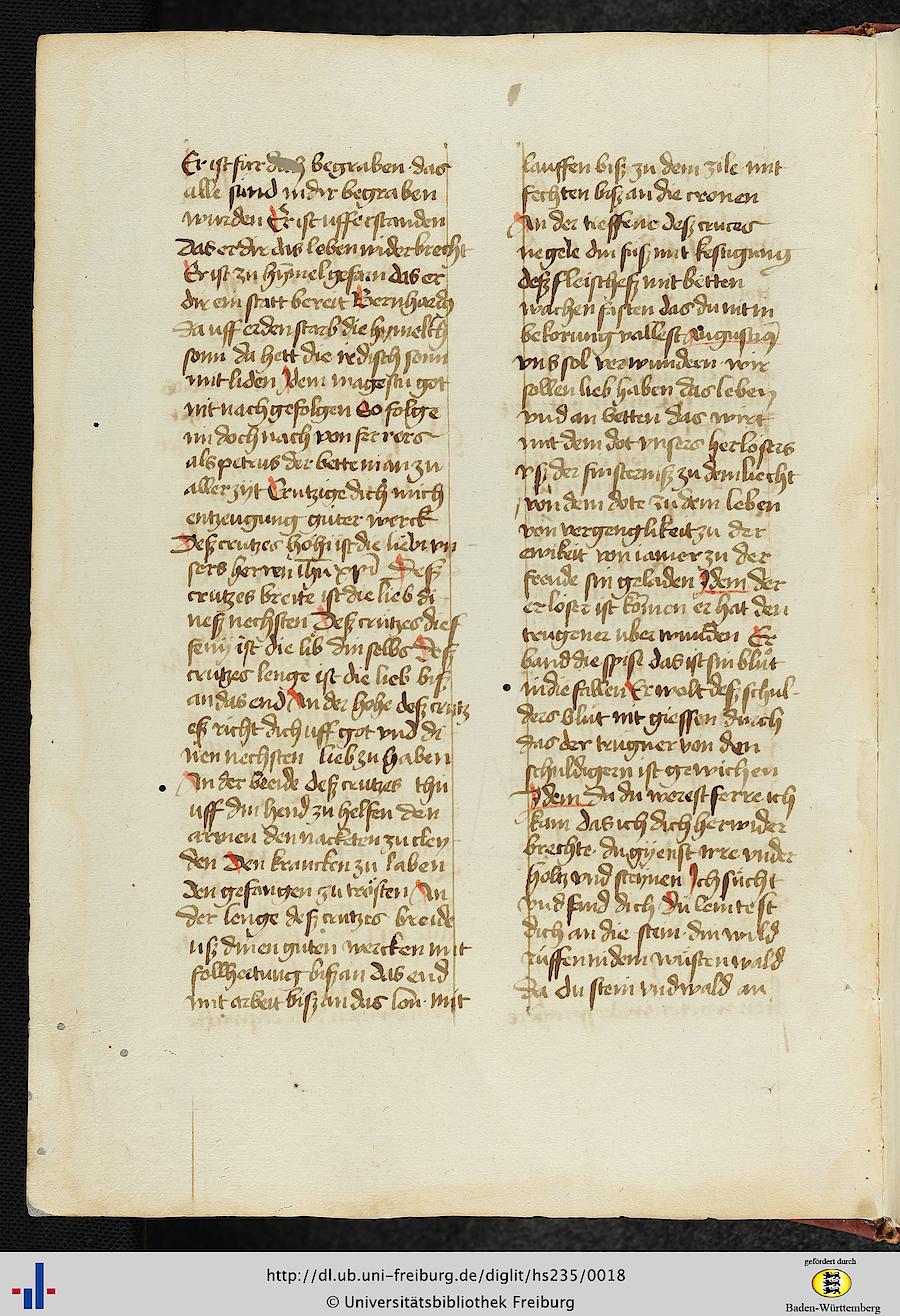 Er ist fur dich begraben das
alle sund in dir begraben
wurden Er ist ufferstanden
Das er dir das leben widerbrecht
Er ist zu hymel gefarn das er
dir ein statt bereit Bernhardus
Da uff erden starb die hymelsch
sonn da hett die irdisch sonn
mit liden Idem magestu got
nit nach gefolgen So folge
im doch nach von ferrens
als petrus der bette man zu
aller zyt Crutzige dich mich
entzeugung guter werck
Deß crutzes hohi ist die liebi vn
sers herren ihu xpi Deß
crutzes breite ist die lieb di
neß nechsten Deß crutzes dief
feny ist die lib din selbs Deß
crutzes lenge ist die lieb biß
an das end An der hohe deß crutz
eß richt dich uff got vnd di
nen nechsten lieb zu haben
An der breide deß crutzes thu
uff din hend zu helfen den
armen den nacketen zu cley
den Den krancken zu laben
Den gefangen zu trosten An
der lenge deß crutzes breide
uß dinen guten wercken mit
follhertung biß an das end
mit arbeit biß an das lon mit
lauffen biß zu dem zile mit
fechten biß an die cronen
An der tieffene deß cruces
negele din fuß mit kestigung
deß fleischeß mit betten
wachen fasten das du nit in
bekorung vallest Augustinus
vns sol verwundern wir
sollen lieb haben das leben
vnd an betten das wirt
mit dem dot vnsers herlosers
vß der finsterniß zu dem liecht
von dem dote zu dem leben
von vergenglikeit zu der
ewikeit von iamer zu der
freude sin geladen Idem der
erloser ist komen er hat den
trugener uberwunden Er
band die spise das ist sin blut
in die fallen Er wolt deß schul-
ders blut nit giessen durch
das der trugner von den
schuldigern ist gewichen
Idem Da du werest ferre ich
kam das ich dich herwider
brechte du gyenst irre vnder
holtz vnd steynen Ich sucht
vnd fand dich Du leintest
dich an die stein din wild
ruffen in dem wusten wald
Da du stein vnd wald an
http://dl.ub.uni-freiburg.de/diglit/hs235/0018
© Universitätsbibliothek Freiburg
gefördert durch
Baden-Württemberg